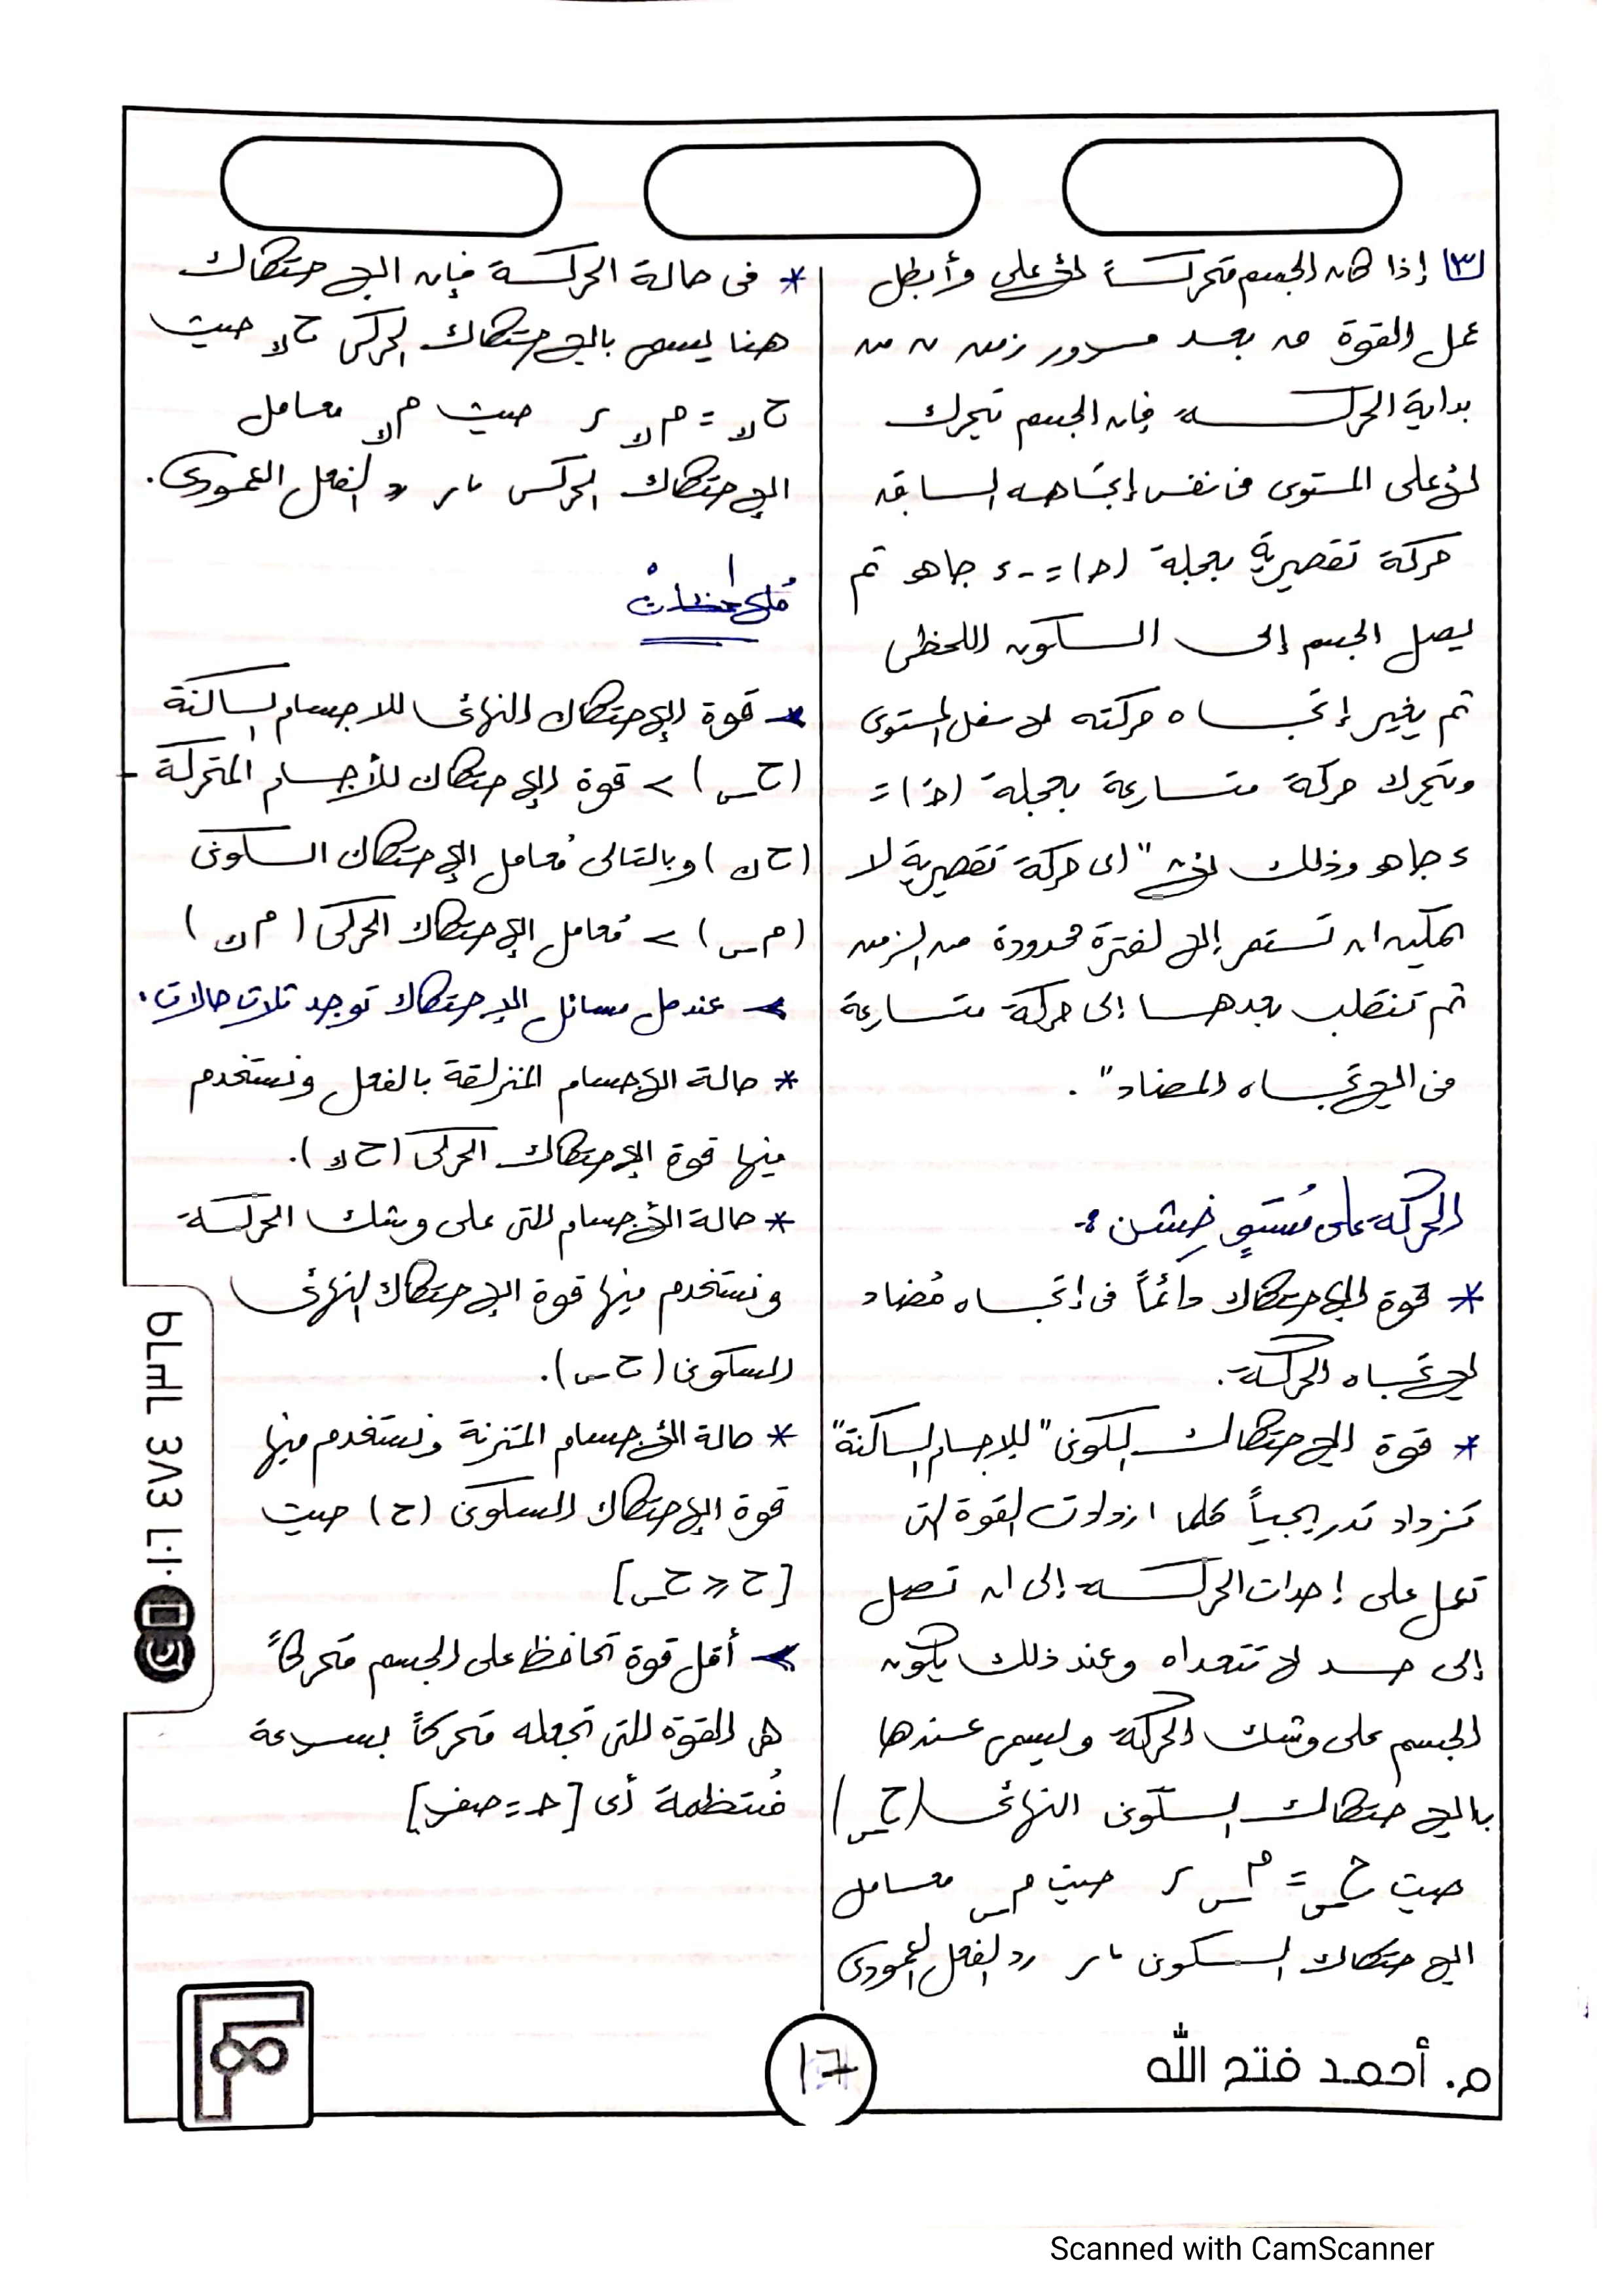 [٣] إذا كان الجسم متحركاً لأعلى وأبطل
عمل القوة ق بعد مرور زمن ن من
بداية الحركة فإن الجسم يتحرك
لأعلى المستوى فى نفس إتجاهه السابق
حركة تقصيرية بعجلة (حـ) = -ء جا هـ ثم
يصل الجسم إلى السكون اللحظى
ثم يغير إتجاه حركته لأسفل المستوى
ويتحرك حركة متسارعة بعجلة (حـَ) =
ء جا هـ وذلك لأن "اى حركة تقصيرية لا
يمكن ان تستمر إلا لفترة محدودة من الزمن
ثم تنقلب بعدها إلى حركة متسارعة
فى الإتجاه المضاد".
الحركة على مُستوٍ خِشن :-
* قوة الإحتكاك دائماً فى إتجاه مُضاد
لإتجاه الحركة.
* قوة الإحتكاك السكونى "للاجسام الساكنة"
تزداد تدريجياً كلما ازدادت القوة التى
تعمل على إحداث الحركة إلى ان تصل
إلى حد لا تتعداه وعند ذلك يكون
الجسم على وشك الحركة ويسمى عندها
بالإحتكاك السكونى النهائى (ح س)
حيث ح س = م س ر حيث م س معامل
الإحتكاك السكونى ، ر رد الفعل العمودى
* فى حالة الحركة فإن الإحتكاك
هنا يسمى بالإحتكاك الحركى ح ك حيث
ح ك = م ك ر حيث م ك معامل
الإحتكاك الحركى ، ر رد الفعل العمودى.
مُلاحظات
قوة الإحتكاك النهائى للاجسام الساكنة
(ح س) > قوة الإحتكاك للأجسام المتحركة
(ح ك) وبالتالى مُعامل الإحتكاك السكونى
(م س) > مُعامل الإحتكاك الحركى (م ك)
عند حل مسائل الإحتكاك توجد ثلاث حالات:
* حالة الأجسام المنزلقة بالفعل ونستخدم
فيها قوة الإحتكاك الحركى (ح ك).
* حالة الأجسام التى على وشك الحركة
ونستخدم فيها قوة الإحتكاك النهائى
السكونى (ح س).
* حالة الأجسام المتزنة ونستخدم فيها
قوة الإحتكاك السكونى (ح) حيث
[ح ≤ ح س]
أقل قوة تحافظ على الجسم متحركاً
هى القوة التى تجعله متحركاً بسرعة
مُنتظمة أى [حـ = صفر]
م. أحمد فتح الله
Scanned with CamScanner